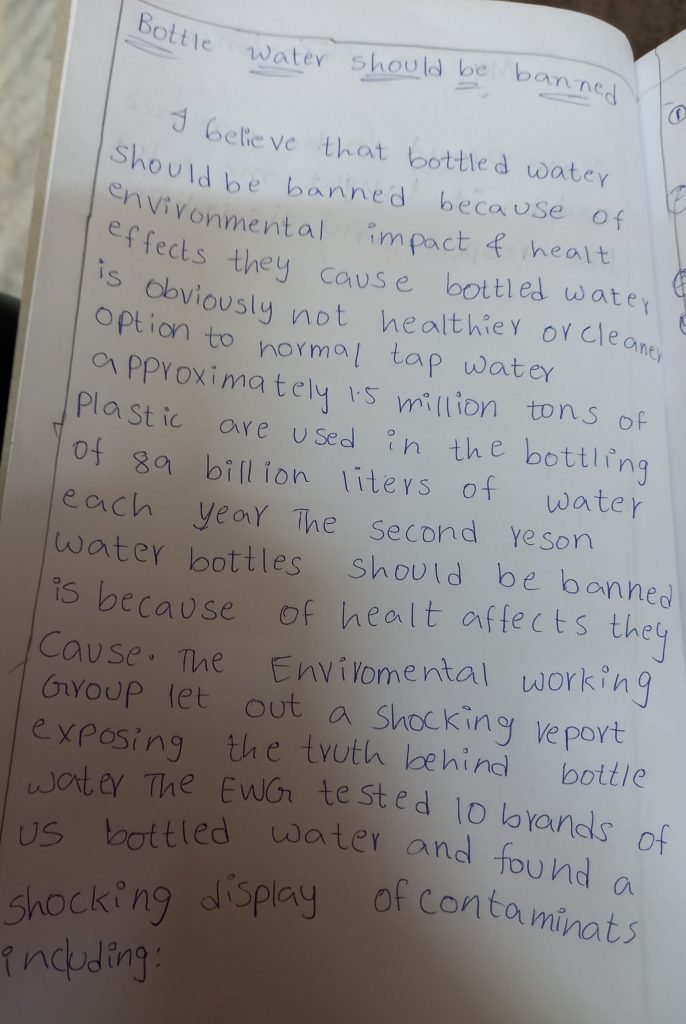 Bottle water should be banned
I believe that bottled water
should be banned because of
environmental impact & healt
effects they cause bottled water
is obviously not healthier or cleaner
option to normal tap water
approximately 1.5 million tons of
plastic are used in the bottling
of 89 billion liters of water
each year The second reson
water bottles should be banned
is because of healt affects they
cause. The Enviromental working
Group let out a shocking report
exposing the truth behind bottle
water The EWG tested 10 brands of
US bottled water and found a
shocking display of contaminats
including: